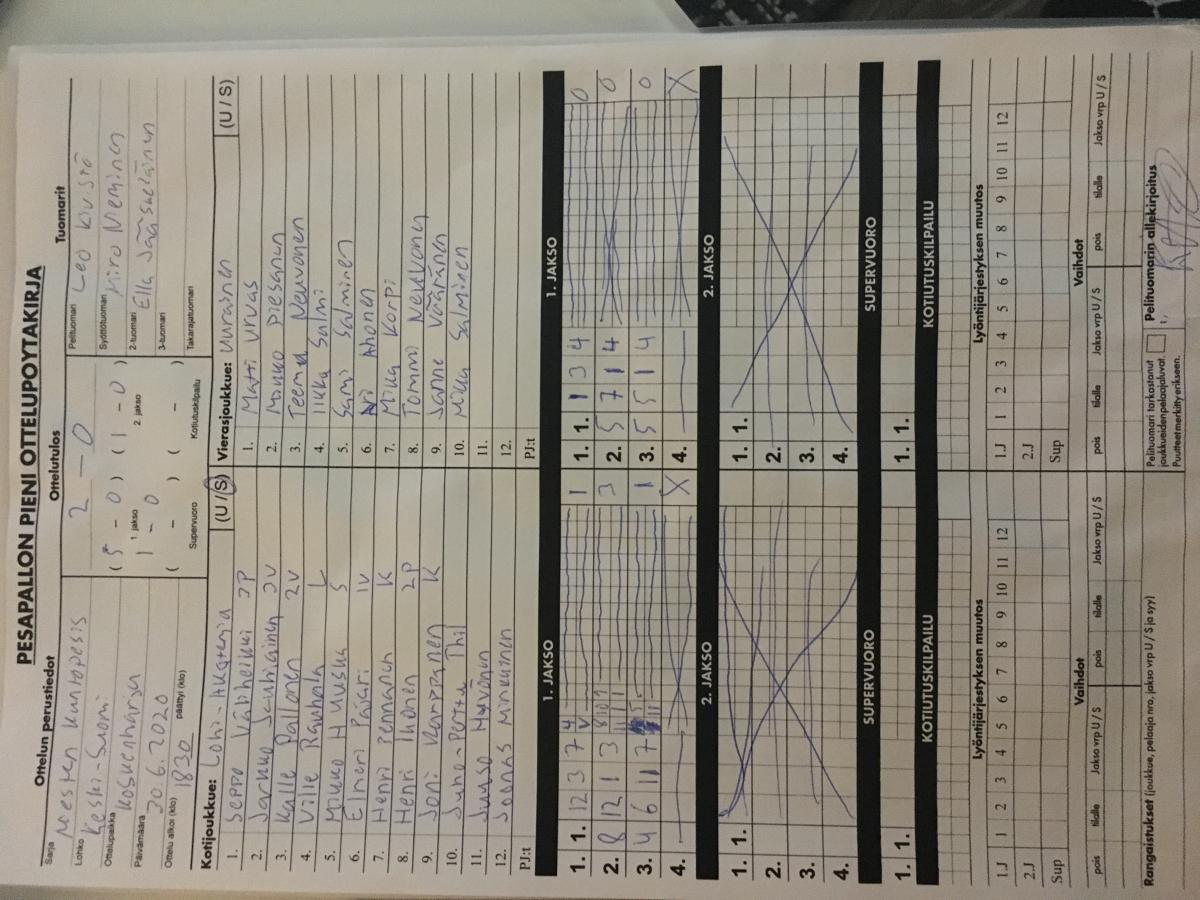 PESÄPALLON PIENI OTTELUPÖYTÄKIRJA
Ottelun perustiedot
Ottelutulos
Tuomarit
Sarja Miesten kuntopesis
Lohko Keski-Suomi
Ottelupaikka Koskenharju
Päivämäärä 30.6.2020
Ottelu alkoi (klo) 1830 päättyi (klo)
2 - 0
( 5 - 0 ) ( 1 - 0 )
1. jakso 2. jakso
1 - 0
( - ) ( - )
Supervuoro Kotiutuskilpailu
Pelituomari Leo Kivistö
Syöttötuomari Miro Nieminen
2-tuomari Ella Jääskeläinen
3-tuomari
Takarajatuomari
Kotijoukkue: Lohi- (U / S)
1. Seppo Väliheikki 3P
2. Jarkko Jauhiainen 3V
3. Kalle Pallonen 2V
4. Ville Rauhala L
5. Mikko Huuska S
6. Elmeri Pajari 1V
7. Henri Pennanen K
8. Henri Ihonen 2P
9. Joni Karppanen K
10. Juho-Perttu Thil
11. Juuso Hyvönen
12. Joonas Minkkinen
PJ:t
Vierasjoukkue: Uurainen (U / S)
1. Matti Urvas
2. Markko Piesanen
3. Teemu Neuvonen
4. Ilkka Salmi
5. Sami Salminen
6. Ahonen
7. Mika Korpi
8. Tommi Nekkonen
9. Janne Väänänen
10. Mika Salminen
11.
12.
PJ:t
1. JAKSO
1. 1. 12 3 7 4 1
2. 8 12 1 3 3
3. 4 6 11 7 1
4. X
1. JAKSO
1. 1. 1 3 4 0
2. 5 7 1 4 0
3. 5 5 1 4 0
4. X
2. JAKSO
1. 1.
2.
3.
4.
2. JAKSO
1. 1.
2.
3.
4.
SUPERVUORO
1. 1.
SUPERVUORO
1. 1.
KOTIUTUSKILPAILU
KOTIUTUSKILPAILU
Lyöntijärjestyksen muutos
1.J 1 2 3 4 5 6 7 8 9 10 11 12
2.J
Sup
Lyöntijärjestyksen muutos
1.J 1 2 3 4 5 6 7 8 9 10 11 12
2.J
Sup
Vaihdot
pois tilalle Jakso vrp U / S pois tilalle Jakso vrp U / S
Vaihdot
pois tilalle Jakso vrp U / S pois tilalle Jakso vrp U / S
Rangaistukset (joukkue, pelaaja nro, jakso vrp U / S ja syy)
Pelituomari tarkastanut
joukkueiden pelaajaluvat.
Puutteet merkitty erikseen.
Pelituomarin allekirjoitus